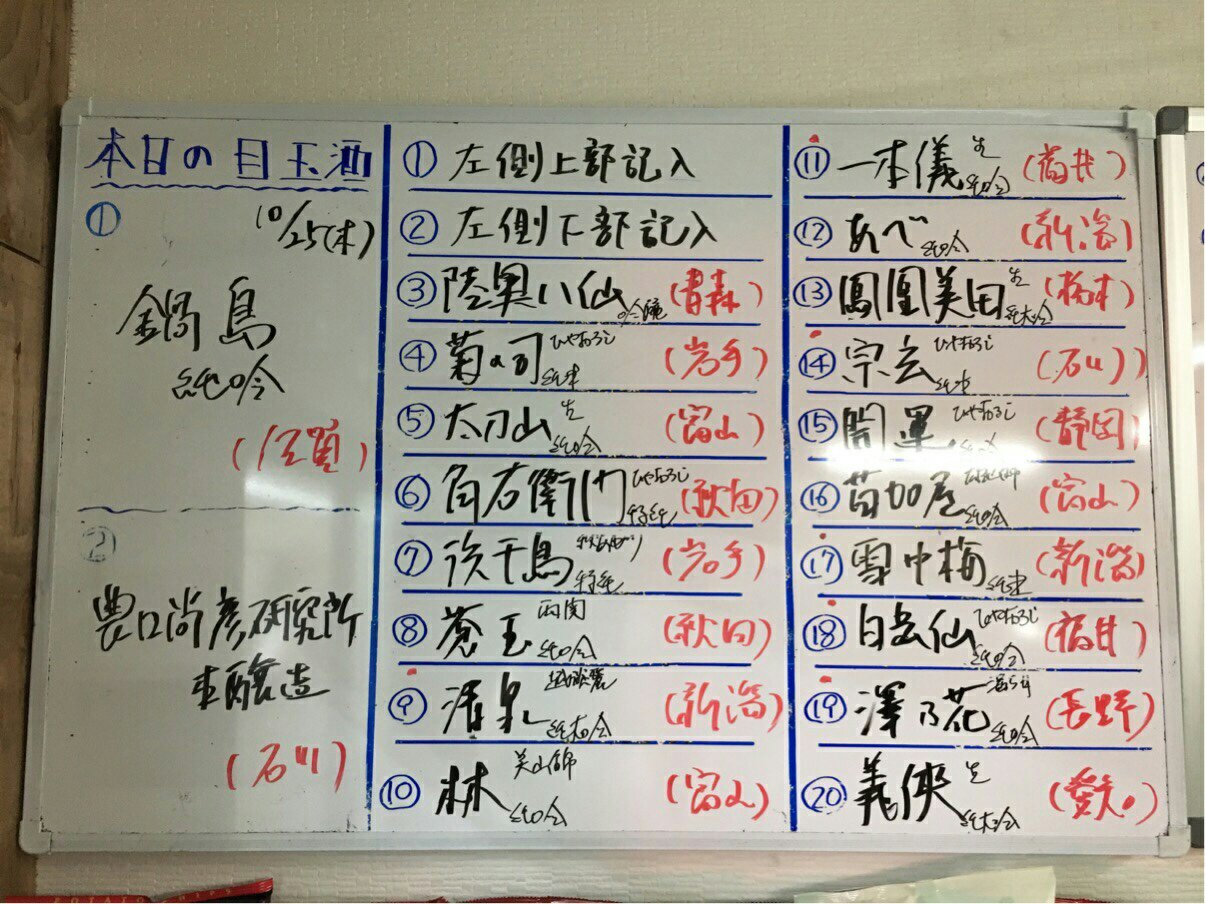 本日の目玉酒
① 10/25(木)
鍋島
純吟
(佐賀)
②
農口尚彦研究所
本醸造
(石川)
① 左側上部記入
② 左側下部記入
③ 陸奥八仙 (青森)
④ 菊の司 ひやおろし 純米 (岩手)
⑤ 太刀山 生 純吟 (富山)
⑥ 角右衛門 ひやおろし 特純 (秋田)
⑦ 浜千鳥 特純 (岩手)
⑧ 蒼玉 両関 純吟 (秋田)
⑨ 越淡麗 純大吟 (新潟)
⑩ 林 美山錦 純吟 (富山)
⑪ 一本義 生 純吟 (福井)
⑫ あべ 純吟 (新潟)
⑬ 鳳凰美田 生 純大吟 (栃木)
⑭ 宗玄 ひやおろし 純米 (石川)
⑮ 開運 ひやおろし 純吟 (静岡)
⑯ 苗加屋 純吟 (富山)
⑰ 雪中梅 純米 (新潟)
⑱ 白岳仙 ひやおろし 純吟 (福井)
⑲ 澤乃花 純吟 (長野)
⑳ 義侠 生 純大吟 (愛知)